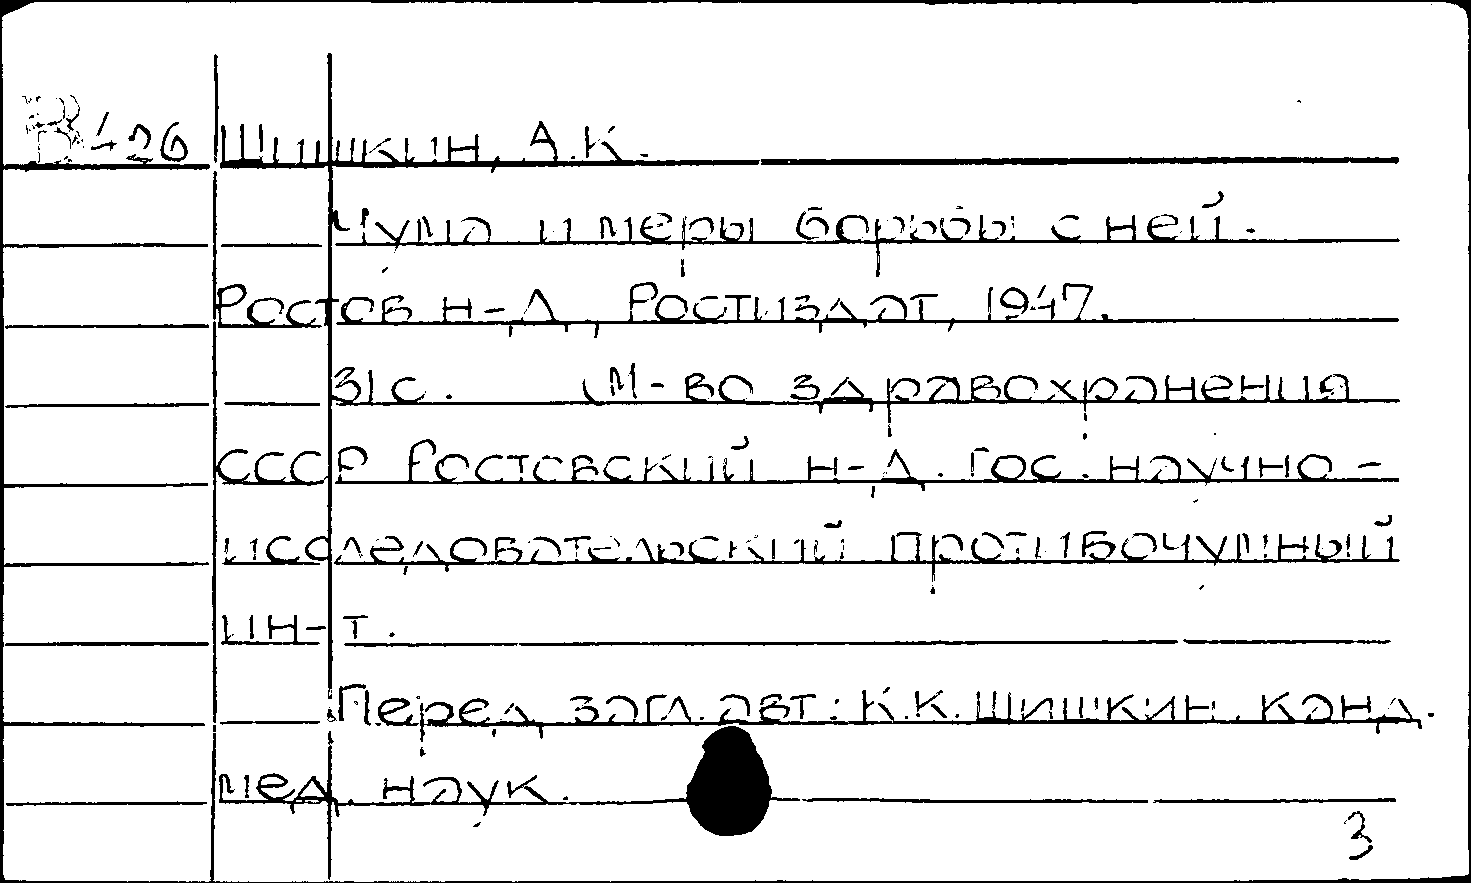 В 426 Шишкин, А.К.
Чума и меры борьбы с ней.
Ростов н-Д, Ростиздат, 1947.
31 с. (М-во здравохранения
СССР Ростовский н-Д. гос. научно-
исследовательский противочумный
ин-т.
Перед загл. авт: К.К. Шишкин. канд.
мед. наук.
3